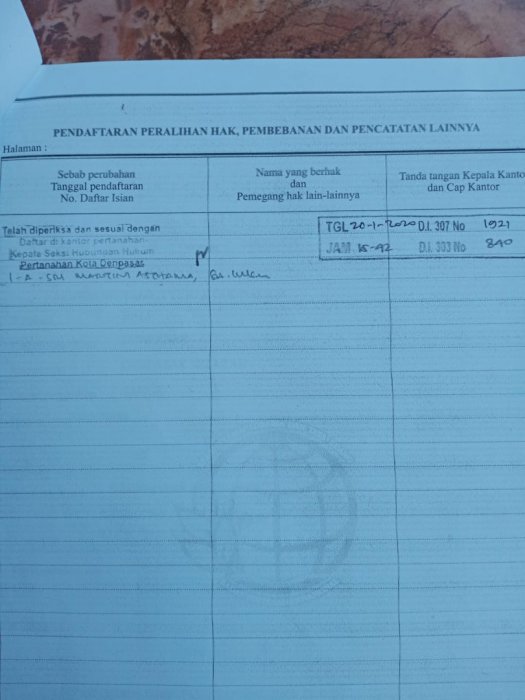 PENDAFTARAN PERALIHAN HAK, PEMBEBANAN DAN PENCATATAN LAINNYA
Halaman :
Sebab perubahan
Tanggal pendaftaran
No. Daftar Isian
Nama yang berhak
dan
Pemegang hak lain-lainnya
Tanda tangan Kepala Kanto
dan Cap Kantor
Telah diperiksa dan sesuai dengan
Daftar di kantor pertanahan
Kepala Seksi Hubungan Hukum
Pertanahan Kota Denpasar
I-A-SRI
TGL 20-1-2020 D.I. 307 No 1921
JAM 15-42 D.I. 303 No 840